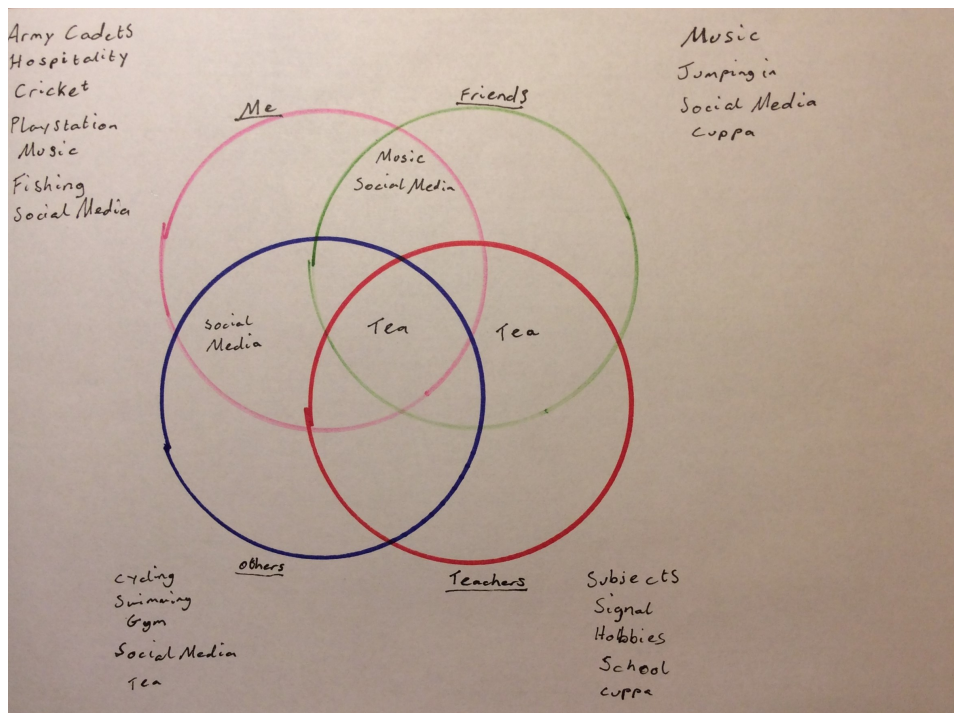 Army Cadets
Hospitality
Cricket
Playstation
Music
Fishing
Social Media
Me
Friends
Music
Jumping in
Social Media
Cuppa
Music
Social Media
Social
Media
Tea
Tea
Others
Cycling
Swimming
Gym
Social Media
Tea
Teachers
Subjects
Signal
Hobbies
School
Cuppa